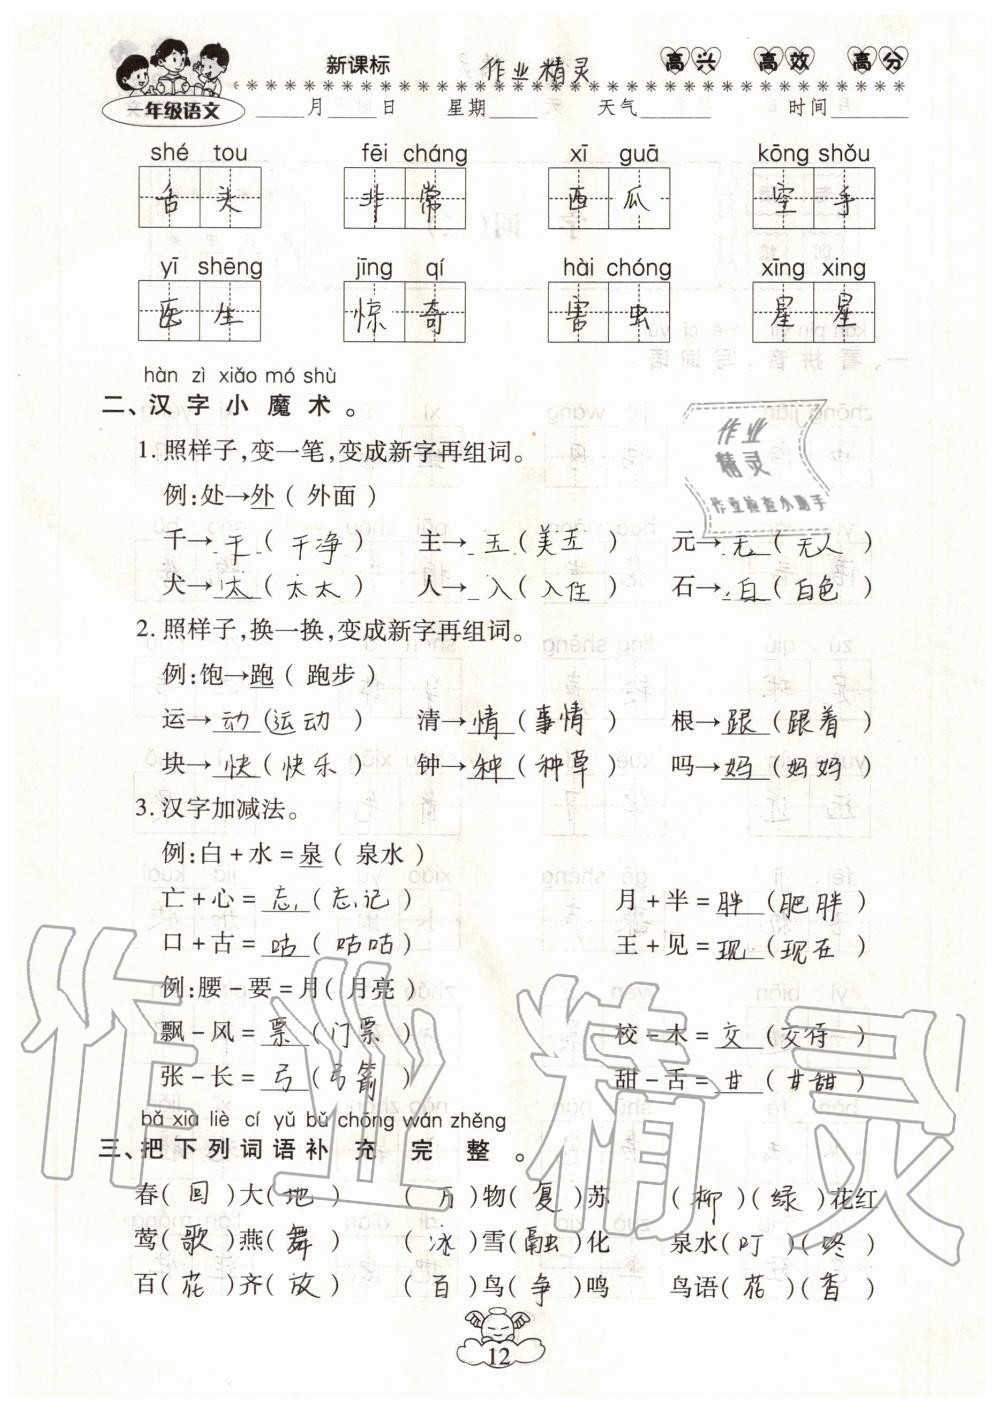 新课标 作业精灵 高兴 高效 高分
一年级语文 ____月____日 星期____ 天气______ 时间______
shé tou fēi cháng xī guā kōng shǒu
舌头 非常 西瓜 空手
yī shēng jīng qí hài chóng xīng xing
医生 惊奇 害虫 星星
hàn zì xiǎo mó shù
二、汉字小魔术。
1.照样子,变一笔,变成新字再组词。
例:处→外(外面)
千→干(干净) 主→玉(美玉) 元→无(无人)
犬→太(太太) 人→入(入住) 石→白(白色)
2.照样子,换一换,变成新字再组词。
例:饱→跑(跑步)
运→动(运动) 清→情(事情) 根→跟(跟着)
块→快(快乐) 钟→种(种草) 吗→妈(妈妈)
3.汉字加减法。
例:白+水=泉(泉水)
亡+心=忘(忘记) 月+半=胖(肥胖)
口+古=咕(咕咕) 王+见=现(现在)
例:腰-要=月(月亮)
飘-风=票(门票) 校-木=交(交待)
张-长=弓(弓箭) 甜-舌=甘(甘甜)
bǎ xià liè cí yǔ bǔ chōng wán zhěng
三、把下列词语补充完整。
春(回)大(地) (万)物(复)苏 (柳)(绿)花红
莺(歌)燕(舞) (冰)雪(融)化 泉水(叮)(咚)
百(花)齐(放) (百)鸟(争)鸣 鸟语(花)(香)
12
作业
精灵
作业检查小助手
作业精灵